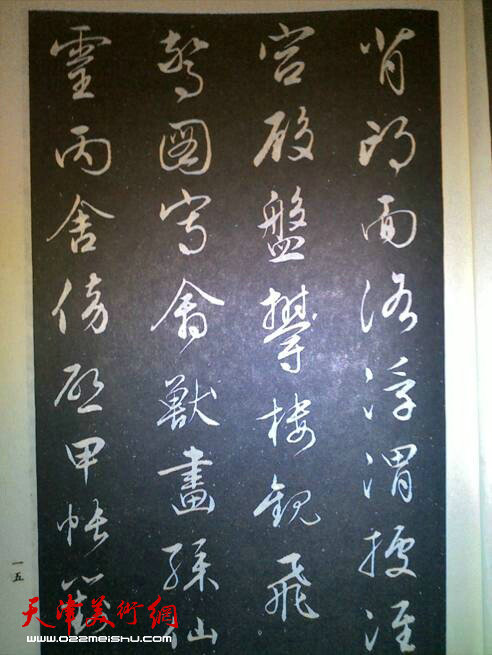 背邙面洛浮渭據涇
宫殿盤欝樓觀飛
驚圖寫禽獸畫綵仙
靈丙舍傍啟甲帳對
一五
天津美術網
www.022meishu.com